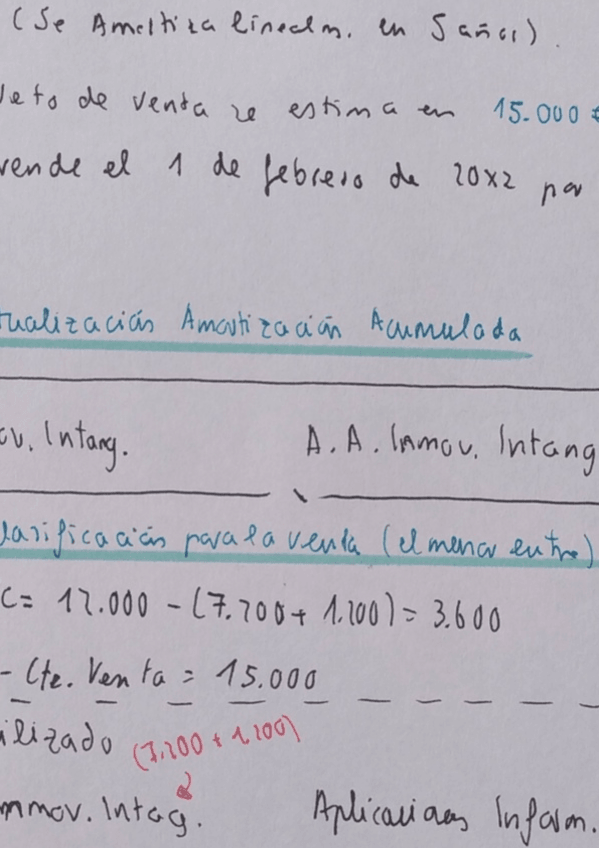 (Se Amortiza linealm. en 5 años).
Neto de venta se estima en 15.000 €
vende el 1 de febrero de 20x2 por
tualización Amortización Acumulada
ov. Intang. A. A. Inmov. Intang
lasificación para la venta (el menor entre)
C = 12.000 - (7.200 + 1.200) = 3.600
- Cte. Venta = 15.000
ilizado (7.200 + 1.200)
nmov. Intag. Aplicaciones Inform.